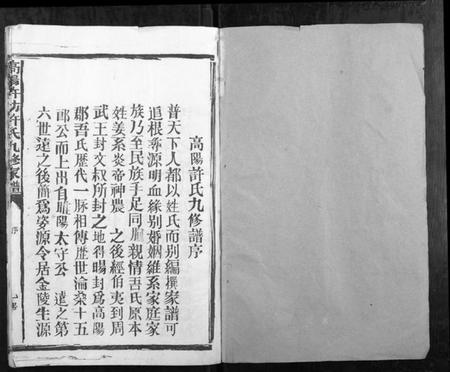 高陽許氏九修譜序
普天下人都以姓氏而别編撰家譜可
追根尋源明血緣别婚姻維系家庭家
族乃至民族手足同胞親情吾氏原本
姓姜系炎帝神農 之後經伯夷到周
武王封文叔所封之地得暘封爲高陽
郡吾氏歷代一脉相傳歷世淪桑十五
公而上出自睢陽太守公 遠之第
六世遠之後 爲婺源令居金陵生源
高陽許氏九修家譜
序